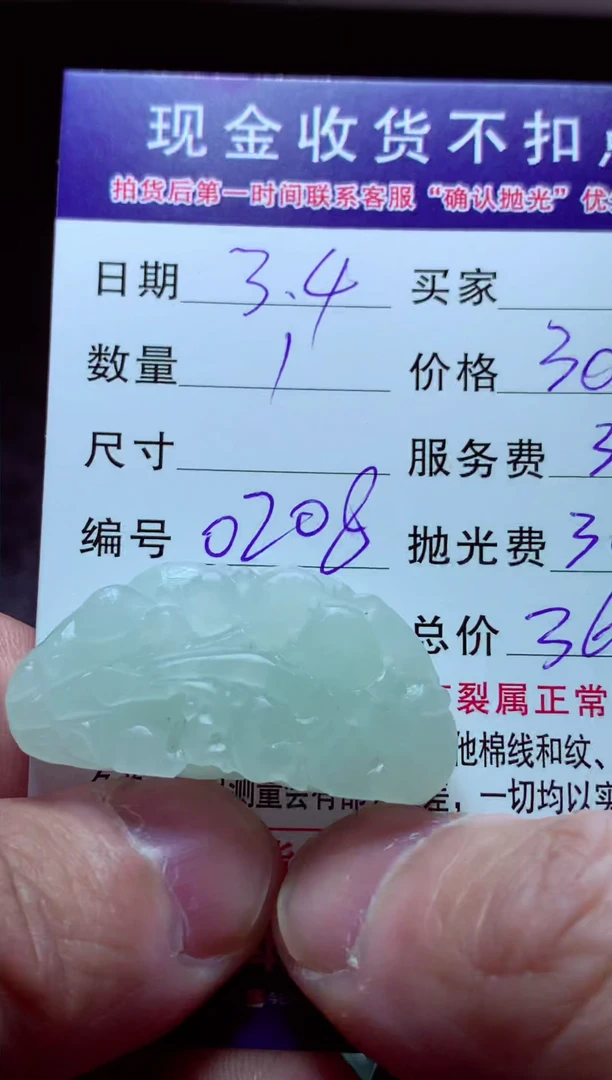 现金收货不扣
拍货后第一时间联系客服“确认抛光”优
日期 3.4 买家
数量 1 价格 30
尺寸 服务费 3
编号 0208 抛光费 3
总价 36
裂属正常
他棉线和纹、
测量会有部 差，一切均以实